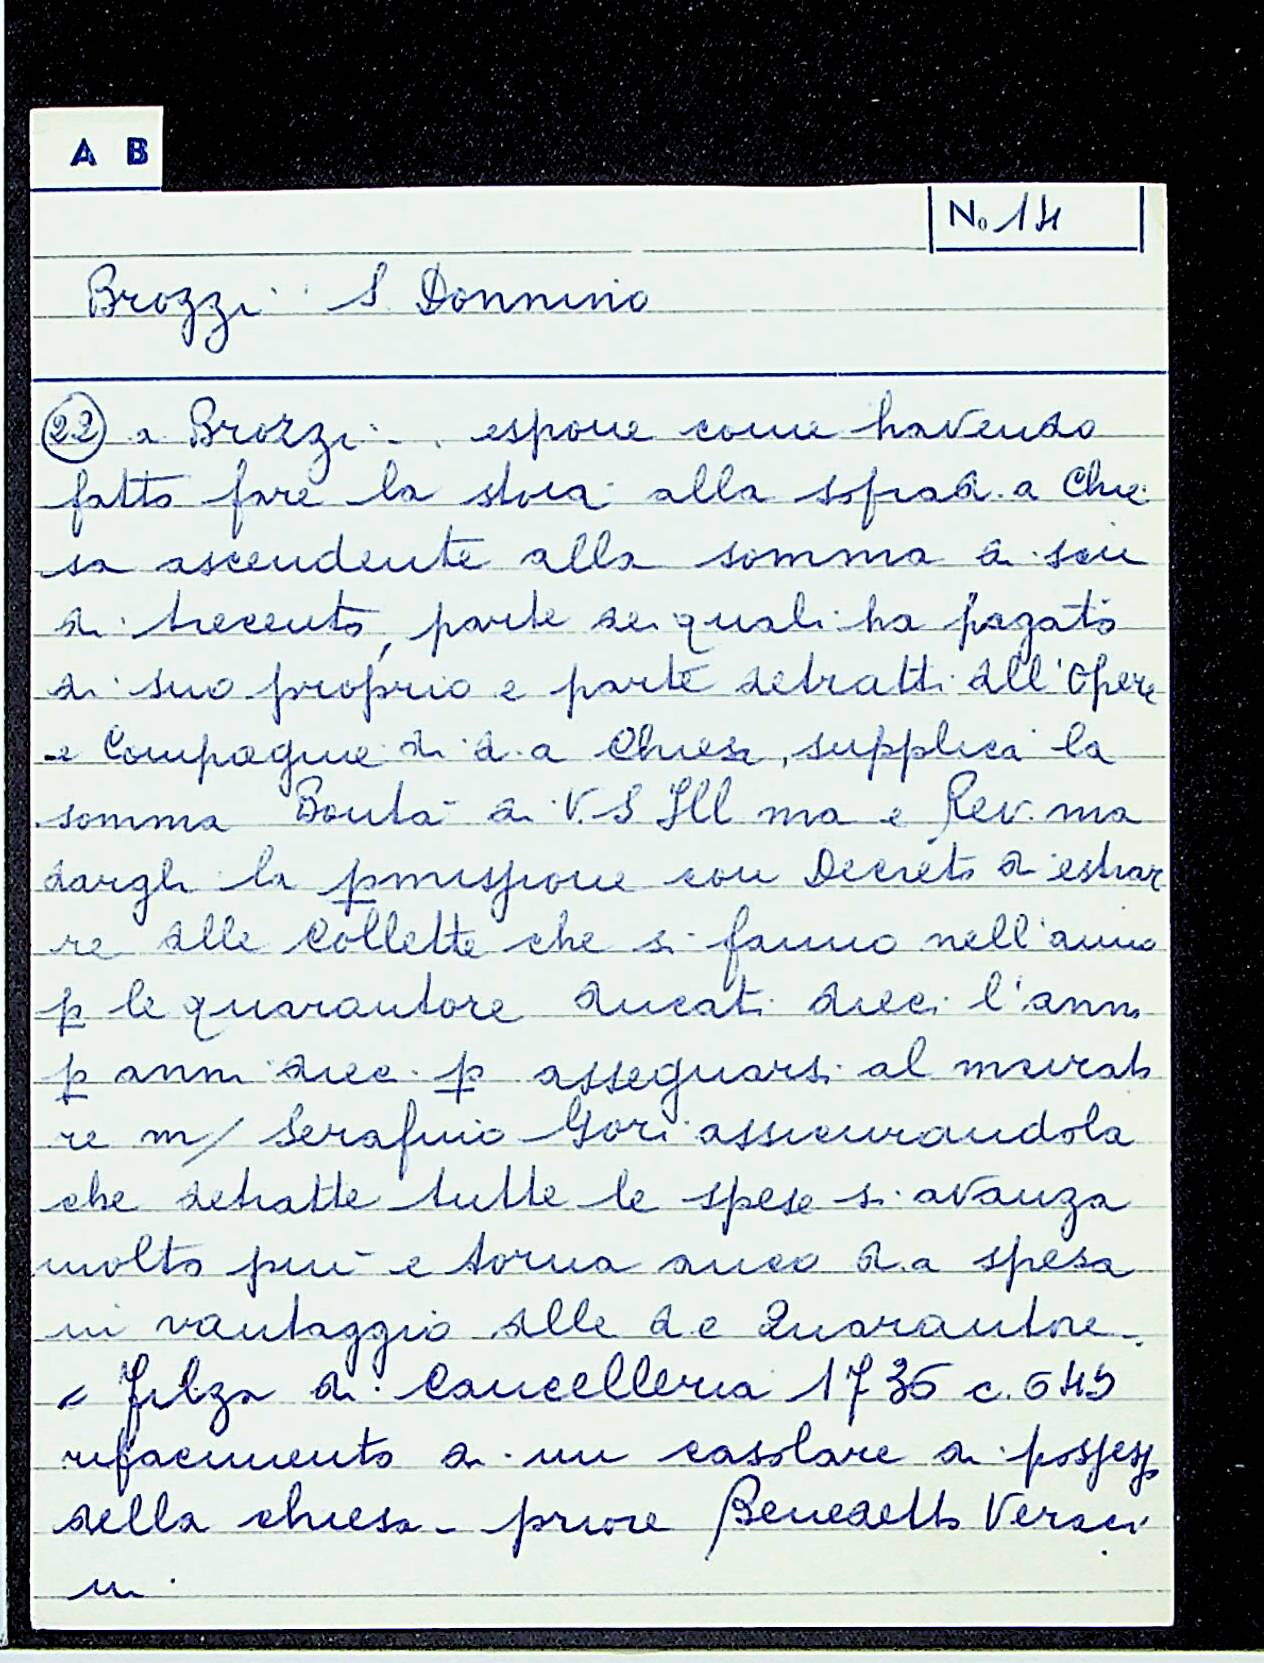 A B
No 14
Brozzi S. Donnino
22 a Brozzi - . espone come havendo
fatto fare la stoia alla soprad.a Chie
sa ascendente alla somma di scu
di trecento, parte dei quali ha pagato
di suo proprio e parte detratti dall'Opere
e Compagnie di d.a Chiesa, supplica la
somma Bontà di V.S Ill ma e Rev.ma
dargli la pmissione con Decreto di estrar
re dalle Collette che si fanno nell'anno
p le quarantore ducati dieci l'anno
p anni dieci p assegnarsi al murato
re m/ Serafino Gori assicurandola
che detratte tutte le spese si avanza
molto più e torna anco d.a spesa
in vantaggio delle d e Quarantore -
Filza di Cancelleria 1736 c. 649
rifacimento di un casolare di possess
della chiesa - priore Benedetto Veraci
ni.